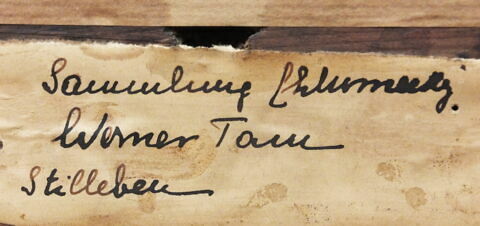 Sammlung
Werner Tam
Stilleben